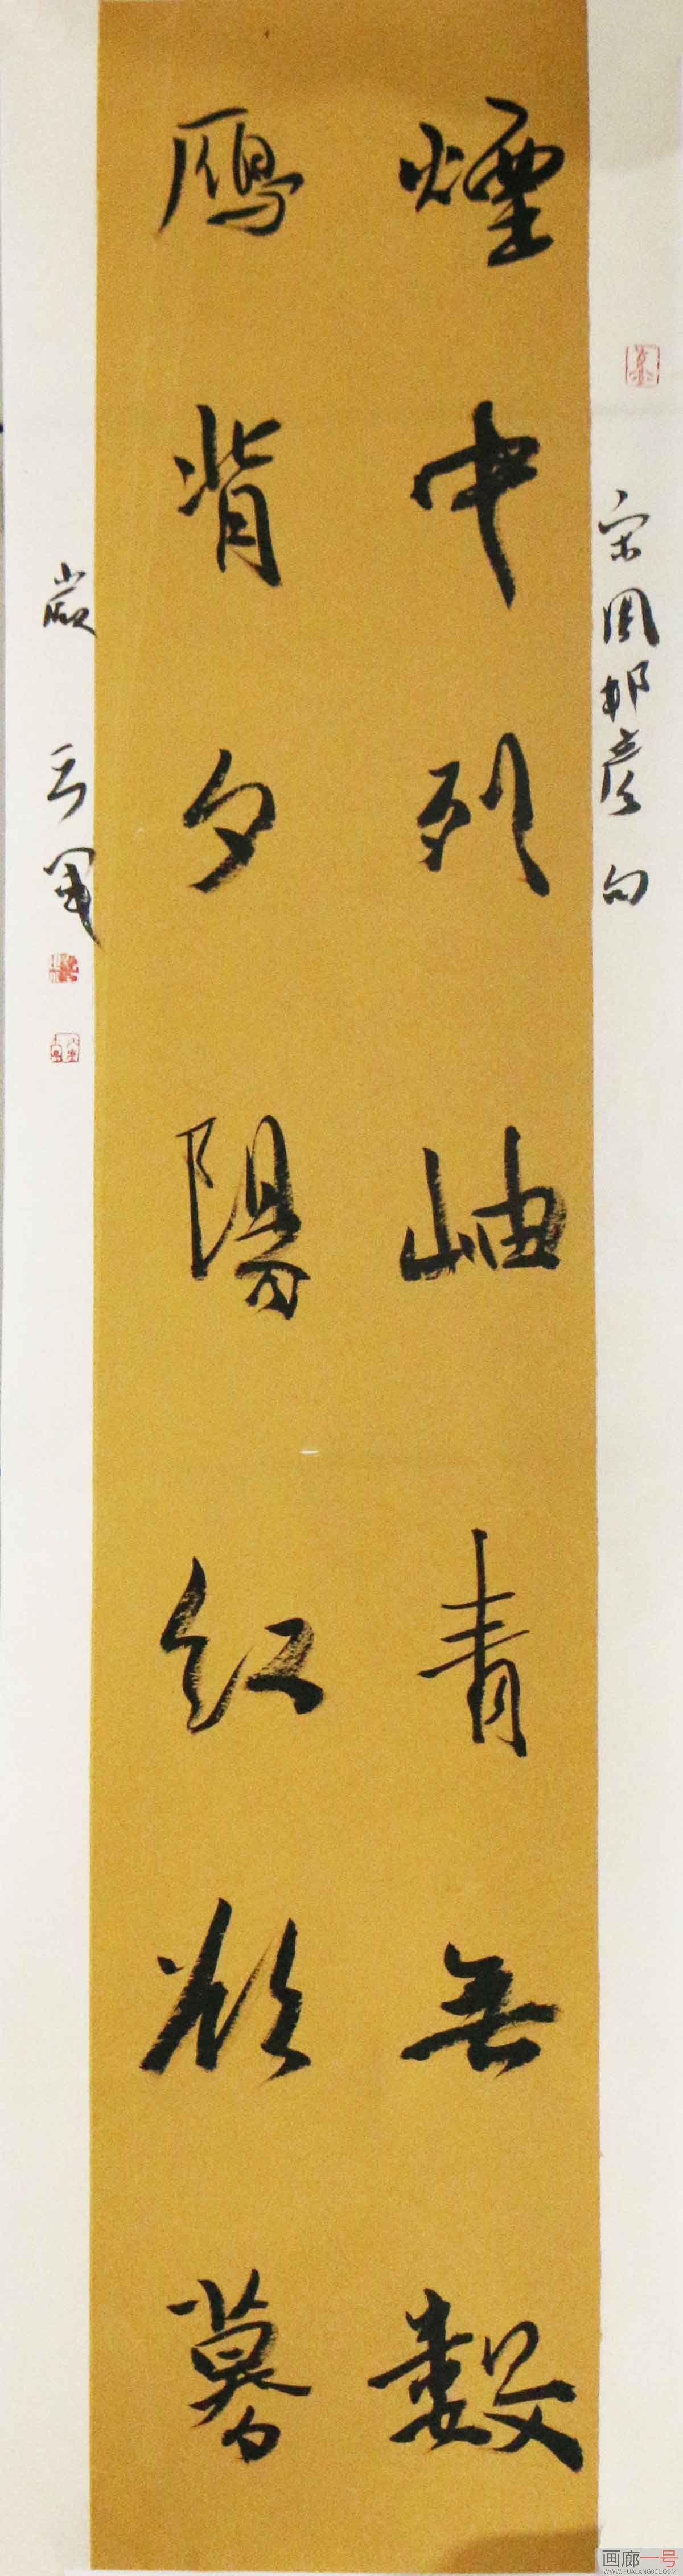 宋周邦彦句
煙中列岫青無數
鴈背夕陽紅欲暮
嚴
軍
画廊一号
WWW.HUALANG001.COM